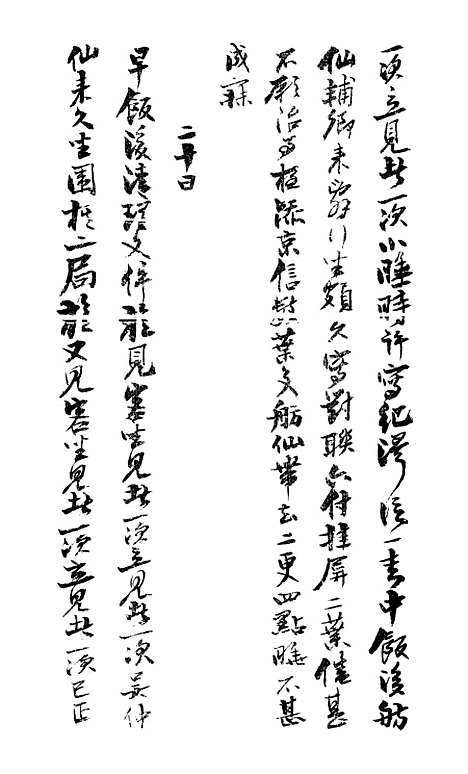 次立見者一次小睡時許寫紀澤信一書中飯後舫
仙輔卿來辭行坐頗久寫對聯六付挂屏二葉倦甚
不願治事核添京信數葉交舫仙帶去二更四點睡不甚
成寐
二十日
早飯後清理文件旋見客坐見者一次立見者一次吳仲
仙來久坐圍棋二局旋又見客坐見者一次立見者一次巳正